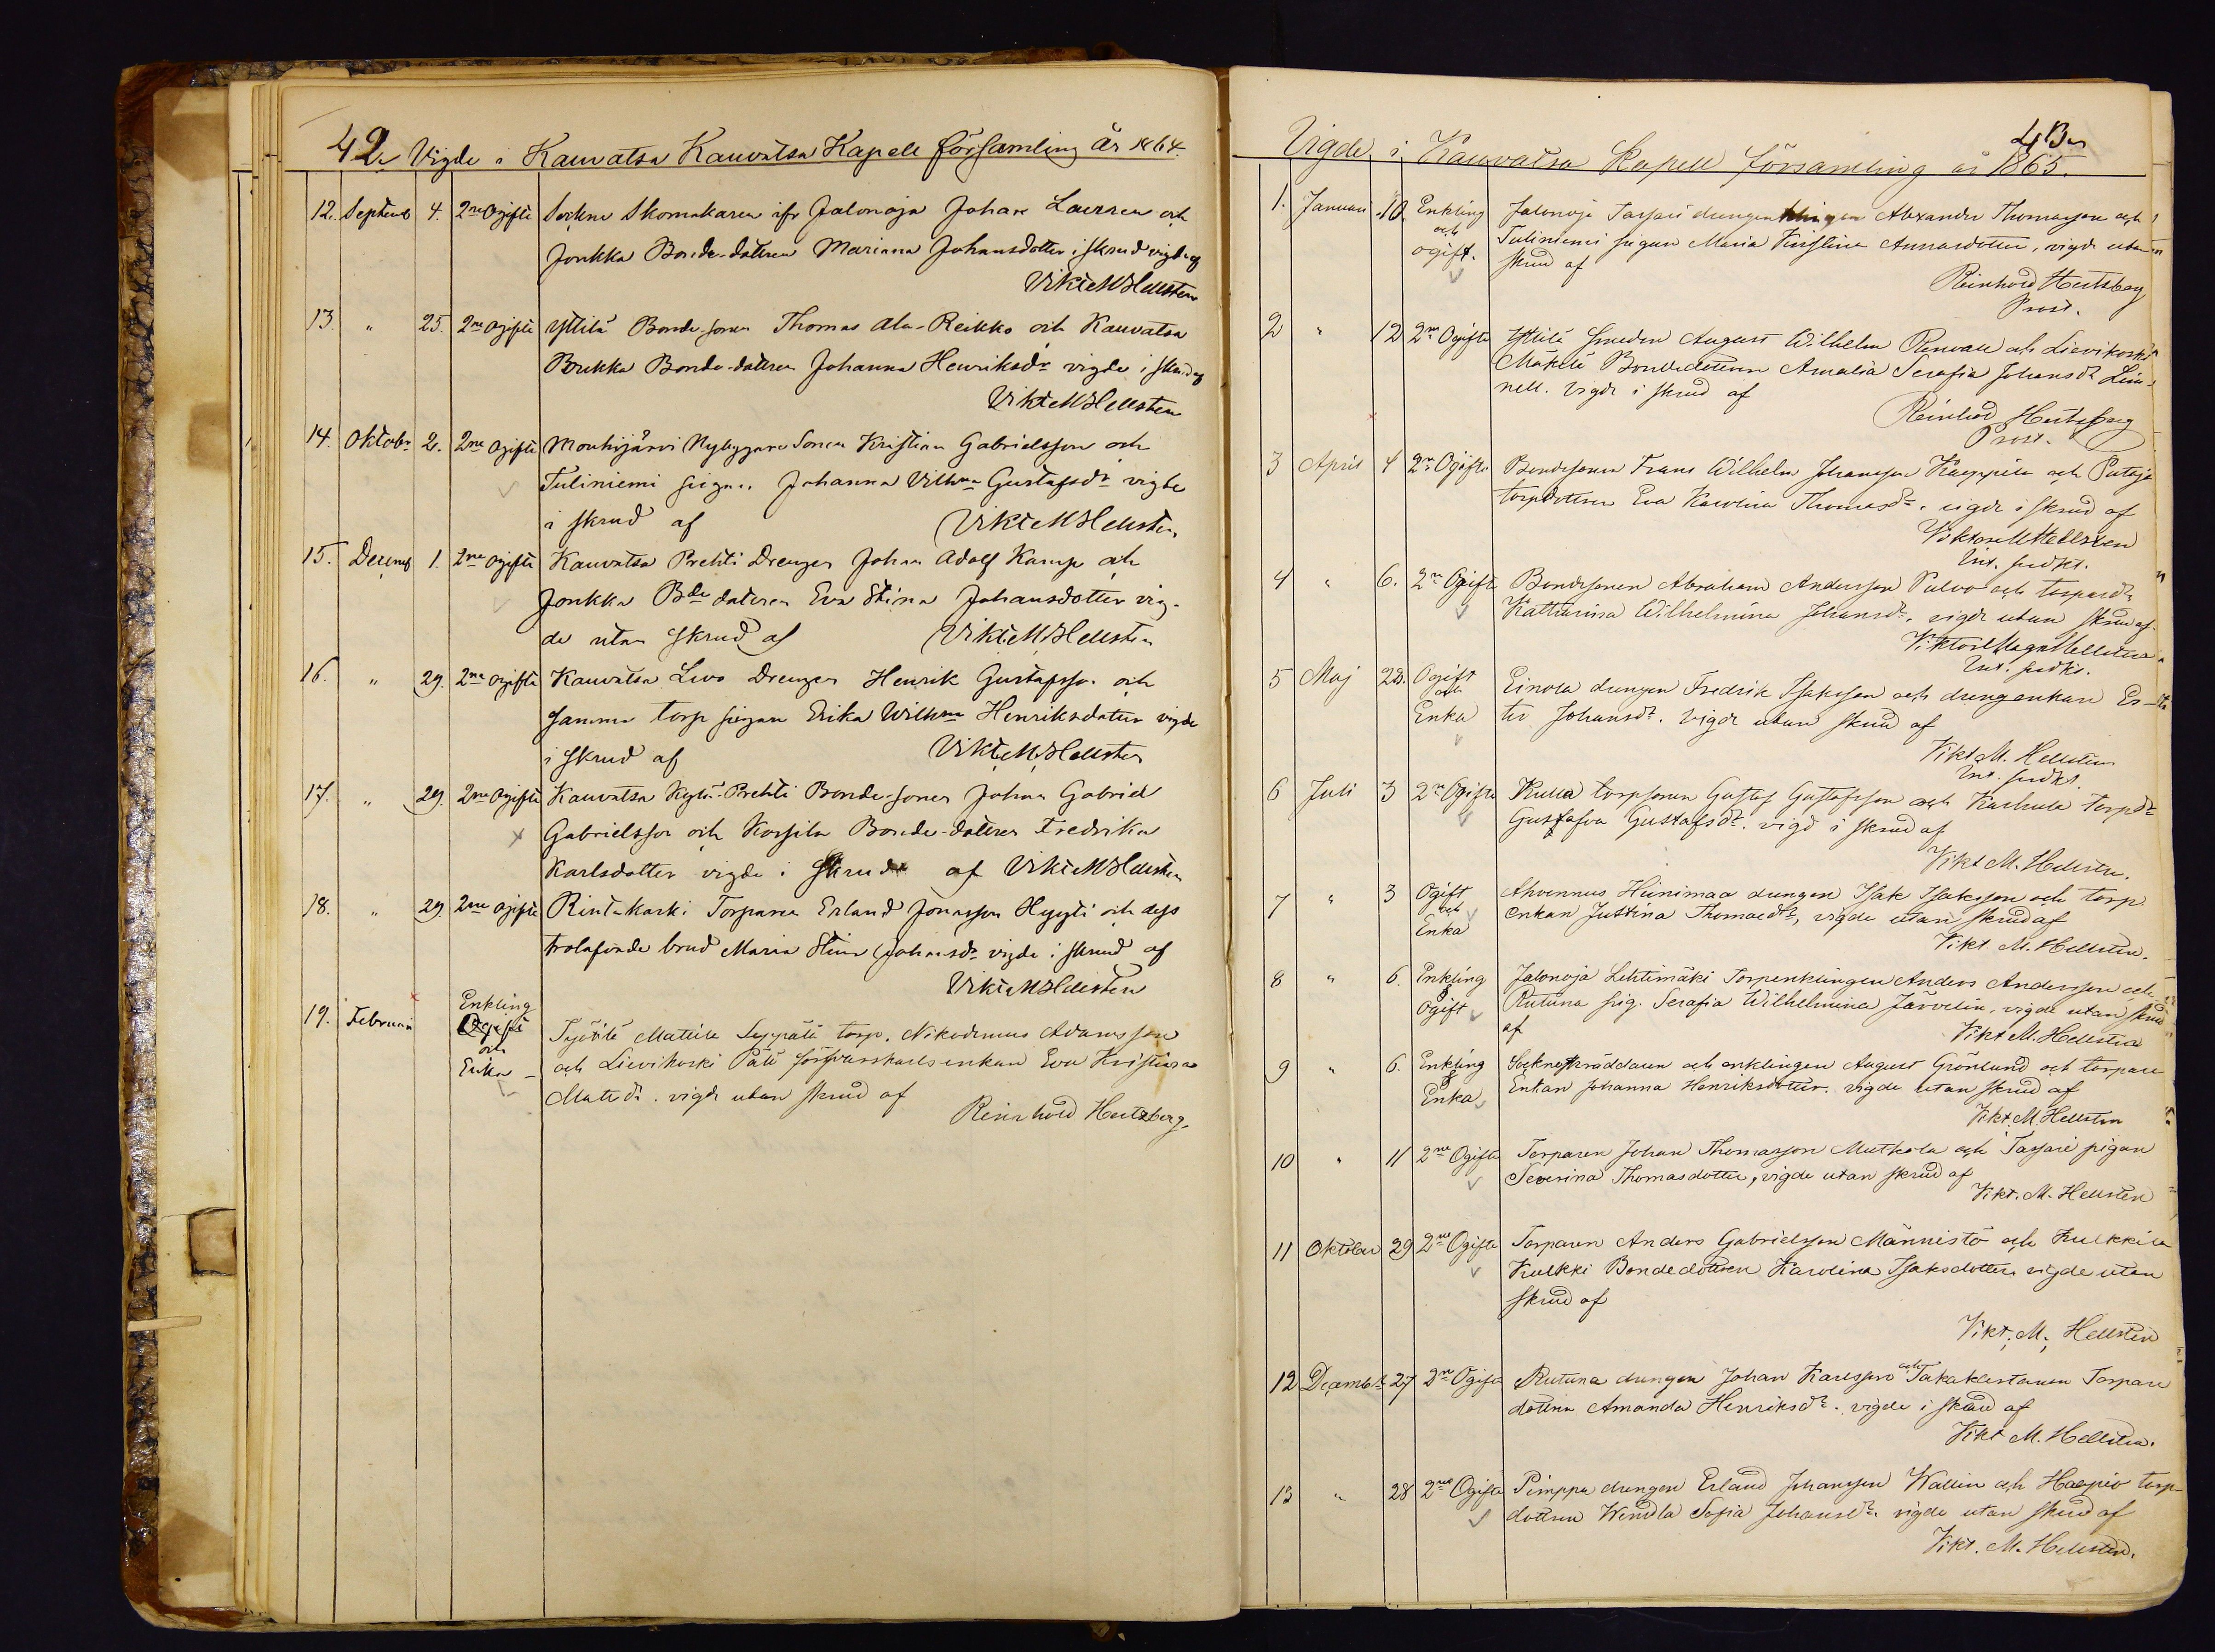 42. Vigde i Kauvatsa Kauvatsa Kapell församling år 1864.
12. Septemb 4. 2ne Ogifte Sockne Skomakaren ifr Jalonoja Johan Laurén och
Jonkka Bonde-dottren Marianna Johansdotter i skrud vigde af
Vikt M Hellsten
13. " 25. 2ne Ogifte Yttilä Bonde-sonen Thomas Ala-Reikko och Kauvatsa
Pukka Bonde-dottren Johanna Henriksdr vigde i skrud af
Vikt M Hellsten
14. Oktobr 2. 2ne Ogifte Mouhijärvi Nybyggare Sonen Kristian Gabrielsson och
Tuliniemi pigan Johanna Vilhna Gustafsdr vigde
i skrud af Vikt M Hellsten
15. Decemb 1. 2ne Ogifte Kauvatsa Prehti Drengen Johan Adolf Kamp och
Jonkka Bde dottren Eva Stina Johansdotter vig-
de utan skrud af Vikt M Hellsten
16. " 29. 2ne Ogifte Kauvatsa Livo Drengen Henrik Gustafsson och
samma torp pigan Erika Wilhna Henriksdotter vigde
i skrud af Vikt M Hellsten
17. " 29. 2ne Ogifte Kauvatsa Kylä-Prehti Bonde-sonen Johan Gabriel
Gabrielsson och Korsila Bonde-dottren Fredrika
Karlsdotter vigde i skrud af Vikt M Hellsten
18. " 29. 2ne Ogifte Rintakoski Torparen Erland Jonasson Hyyti och dess
trolofvade brud Maria Stina Johansdr vigde i skrud af
Vikt M Hellsten
19. Februari Enkling
och
Enka
Työtilä Mattila Seppälä torp. Nikodemus Adamsson
och Lievikoski Päti försvarskarlsenkan Eva Kristina
Matsdr. vigde utan skrud af
Reinhold Hertzberg.
43.
Vigde i Kauvatsa Kapell församling år 1865.
1. Januari 10. Enkling
och
ogift.
Jalonoja Tarsari drengenklingen Alexander Thomasson och
Tuliniemi pigan Maria Kristina Annasdotter, vigde utan
skrud af
Reinhold Hertzberg
Prost.
2 " 12 2ne Ogifte Yttilä smeden August Wilhelm Renvall och Lievikoski
Mäkelä Bondedottren Amalia Serafia Johansdr Lin-
nell. Vigde i skrud af
Reinhold Hertzberg
Prost.
3 April 4 2ne Ogifte Bondesonen Frans Wilhelm Johansson Kaeppilä och Putaja
torpdottren Eva Karolina Thomasdr. vigde i skrud af
Viktor M Hellsten
Int. predkt.
4 " 6. 2ne Ogifte Bondesonen Abraham Andersson Pulvo och torparedr
Katharina Wilhelmina Johansdr. vigde utan skrud af
Viktor Magn Hellsten
Int. predkt.
5 Maj 28. Ogift
och
Enka
Einola drengen Fredrik Isaksson och drengenkan Es-
ter Johansdr. Vigde utan skrud af
Vikt M. Hellsten
Int. predkt.
6 Juli 3 2ne Ogifte Kulla torpsonen Gustaf Gustafsson och Karhula torpdr
Gustafva Gustafsdr. vigd i skrud af
Vikt M. Hellsten.
7 " 3 Ogift
och
Enka
Ahvennus Hiinimaa drengen Isak Isaksson och torp
enkan Justina Thomasdr, vigde utan skrud af
Vikt M. Hellsten.
8 " 6. Enkling
&
Ogift
Jalonoja Lehtimäki Torpenklingen Anders Andersson och
Rutuna pig. Serafia Wilhelmina Järvelin, vigde utan skrud
af
Vikt M. Hellsten
9 " 6. Enkling
&
Enka
Sockneskräddaren och enklingen August Grönlund och torpare
Enkan Johanna Henriksdotter. vigde utan skrud af
Vikt. M Hellsten
10 " 11 2ne Ogifte Torparen Johan Thomasson Mutkola och Tarsari pigan
Severina Thomasdotter, vigde utan skrud af
Vikt. M. Hellsten
11 Oktober 29 2ne Ogifte Torparen Anders Gabrielsson Männistö och Kulkkila
Kulkki Bondedottren Karolina Isaksdotter vigde utan
skrud af
Vikt. M. Hellsten
12 Decembr 27 2ne Ogifte Rutuna drengen Johan Karlsson och Takakarstunen Torpare
dottren Amanda Henriksdr. vigde i skrud af
Vikt M. Hellsten.
13 " 28 2ne Ogifte Pimppa drengen Erland Johansson Wallin och Haapio torp-
dottren Wendla Sofia Johansdr. vigde utan skrud af
Vikt. M. Hellsten.